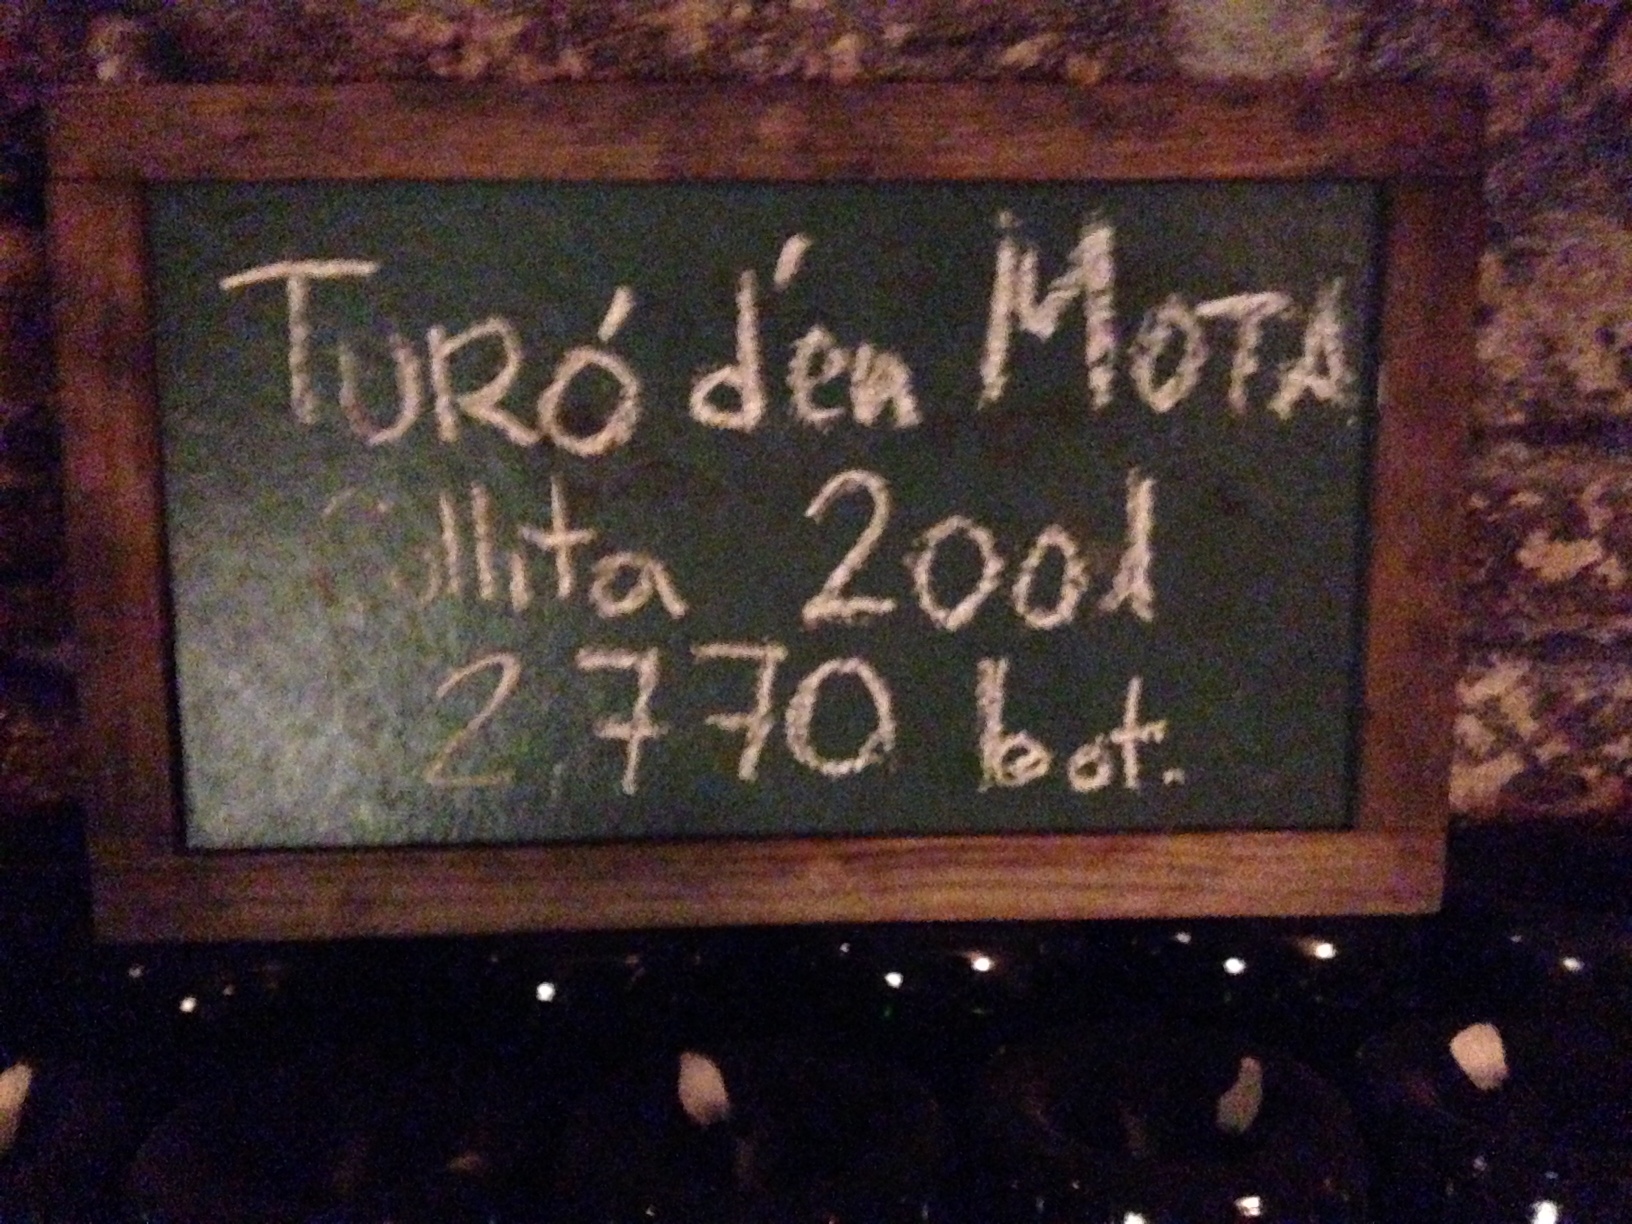 TURÓ d'en MOTA
Collita 2001
2770 bot.